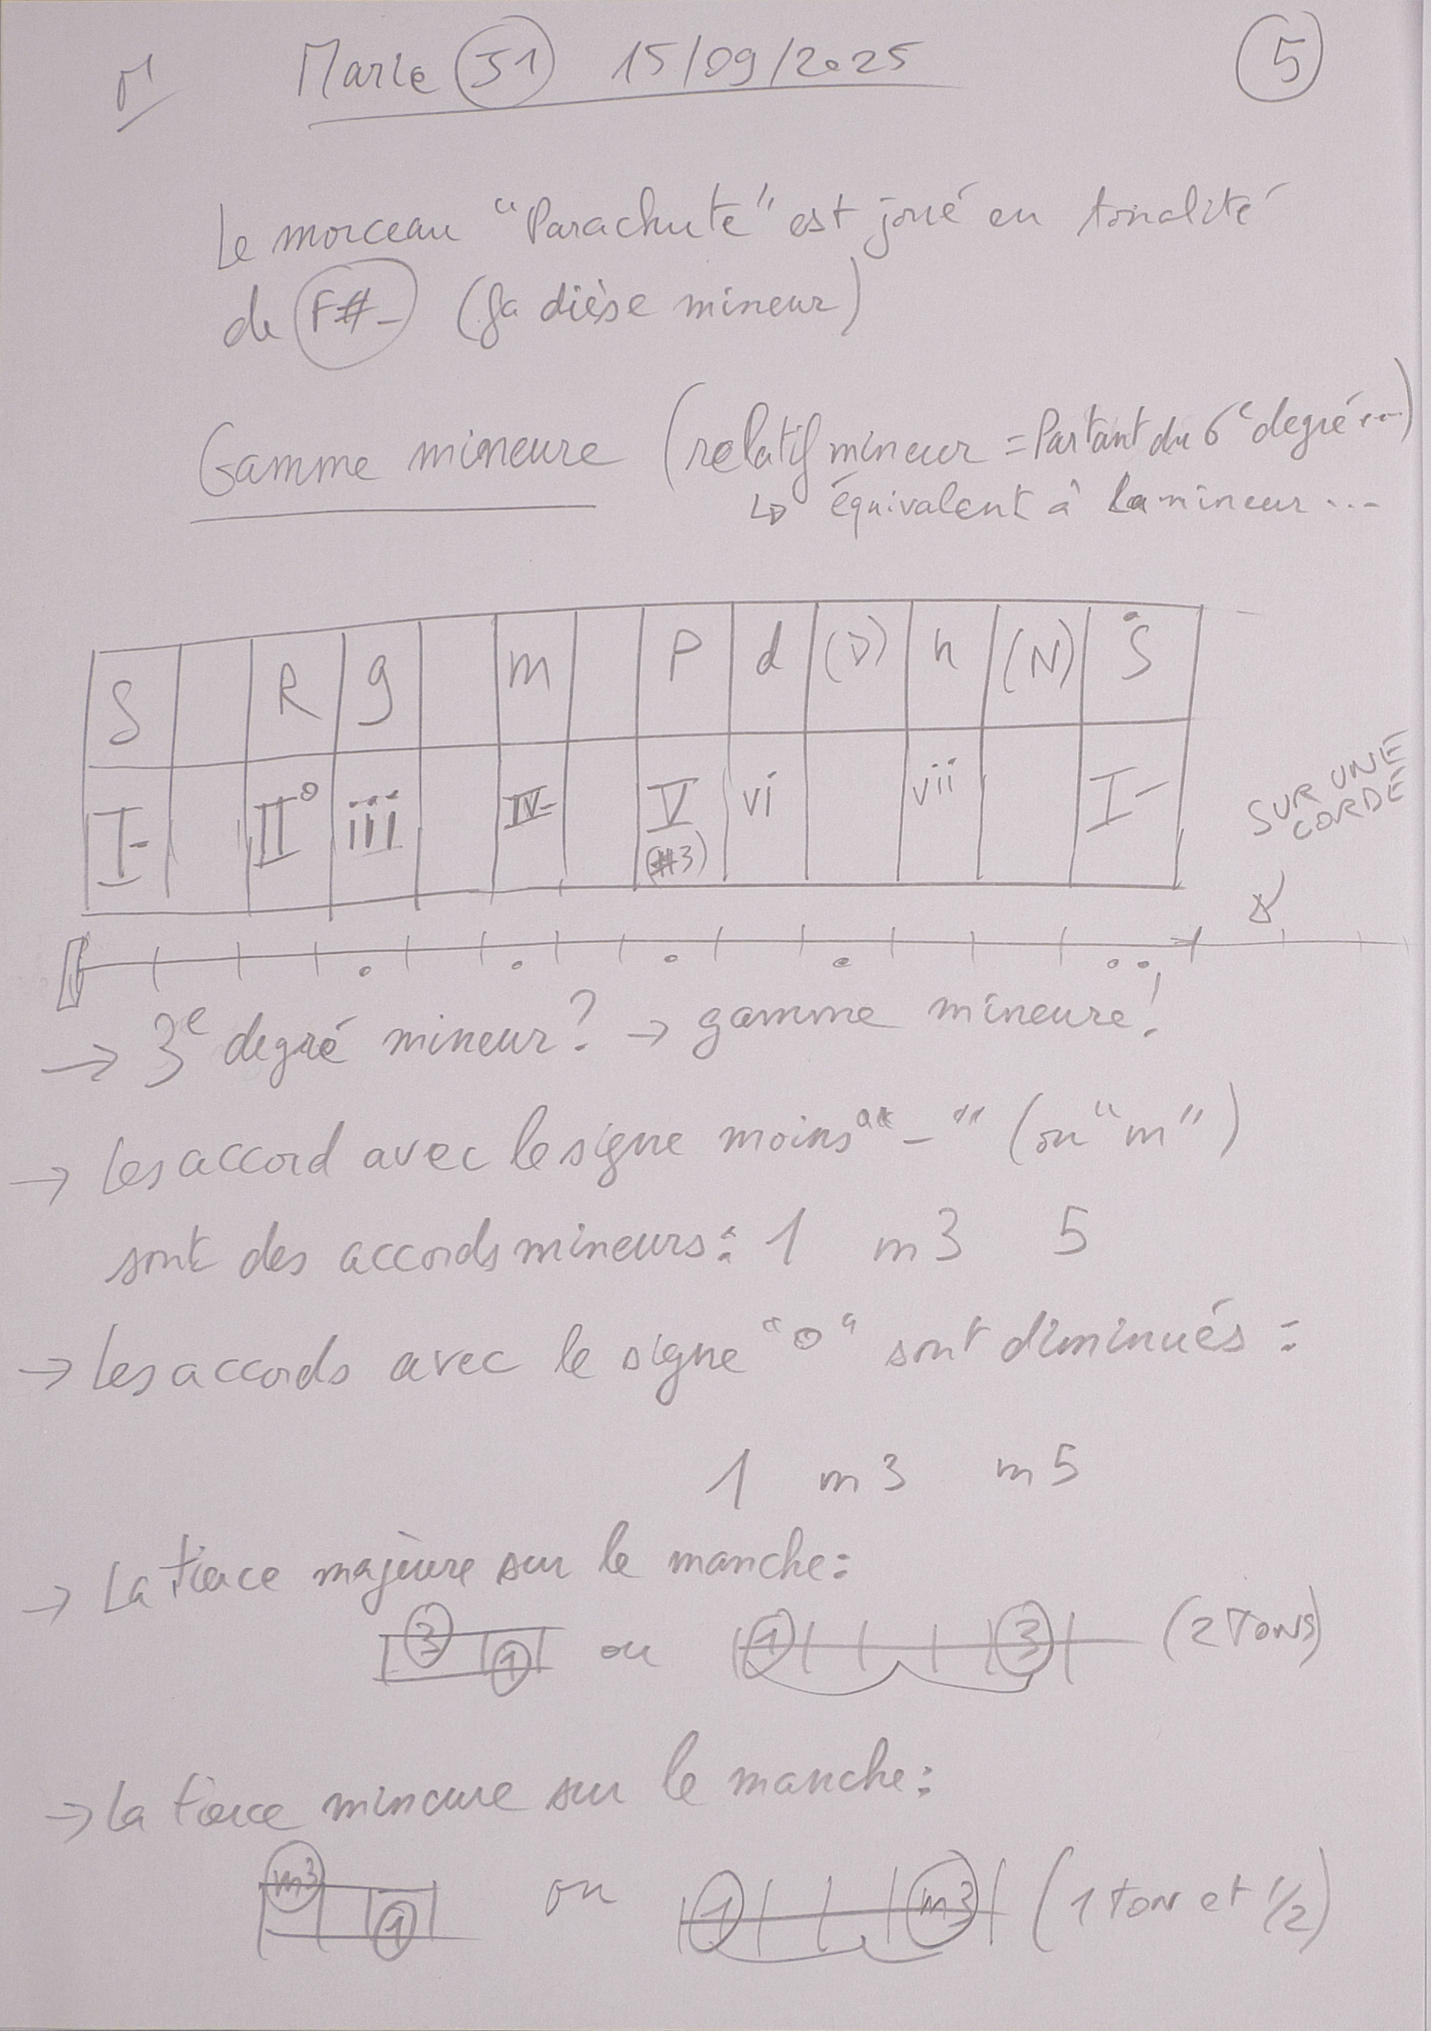 Marie 31 15/09/2025
5
Le morceau "Parachute" est joué en tonalité
de F#- (fa dièse mineur)
Gamme mineure (relatif mineur = Partant du 6e degré...)
↳ équivalent à La mineur...
S R g m P d (D) n (N) Ṡ
I- II° iii IV- V vi vii I-
(#3)
SUR UNE
CORDE
→ 3e degré mineur? → gamme mineure!
→ Les accord avec le signe moins "-" (ou "m")
sont des accords mineurs: 1 m3 5
→ Les accords avec le signe "°" sont diminués =
1 m3 m5
→ La tierce majeure sur le manche:
3 1 ou 1 3 (2 TONS)
→ La tierce mineure sur le manche:
m3 1 ou 1 m3 (1 TON et 1/2)